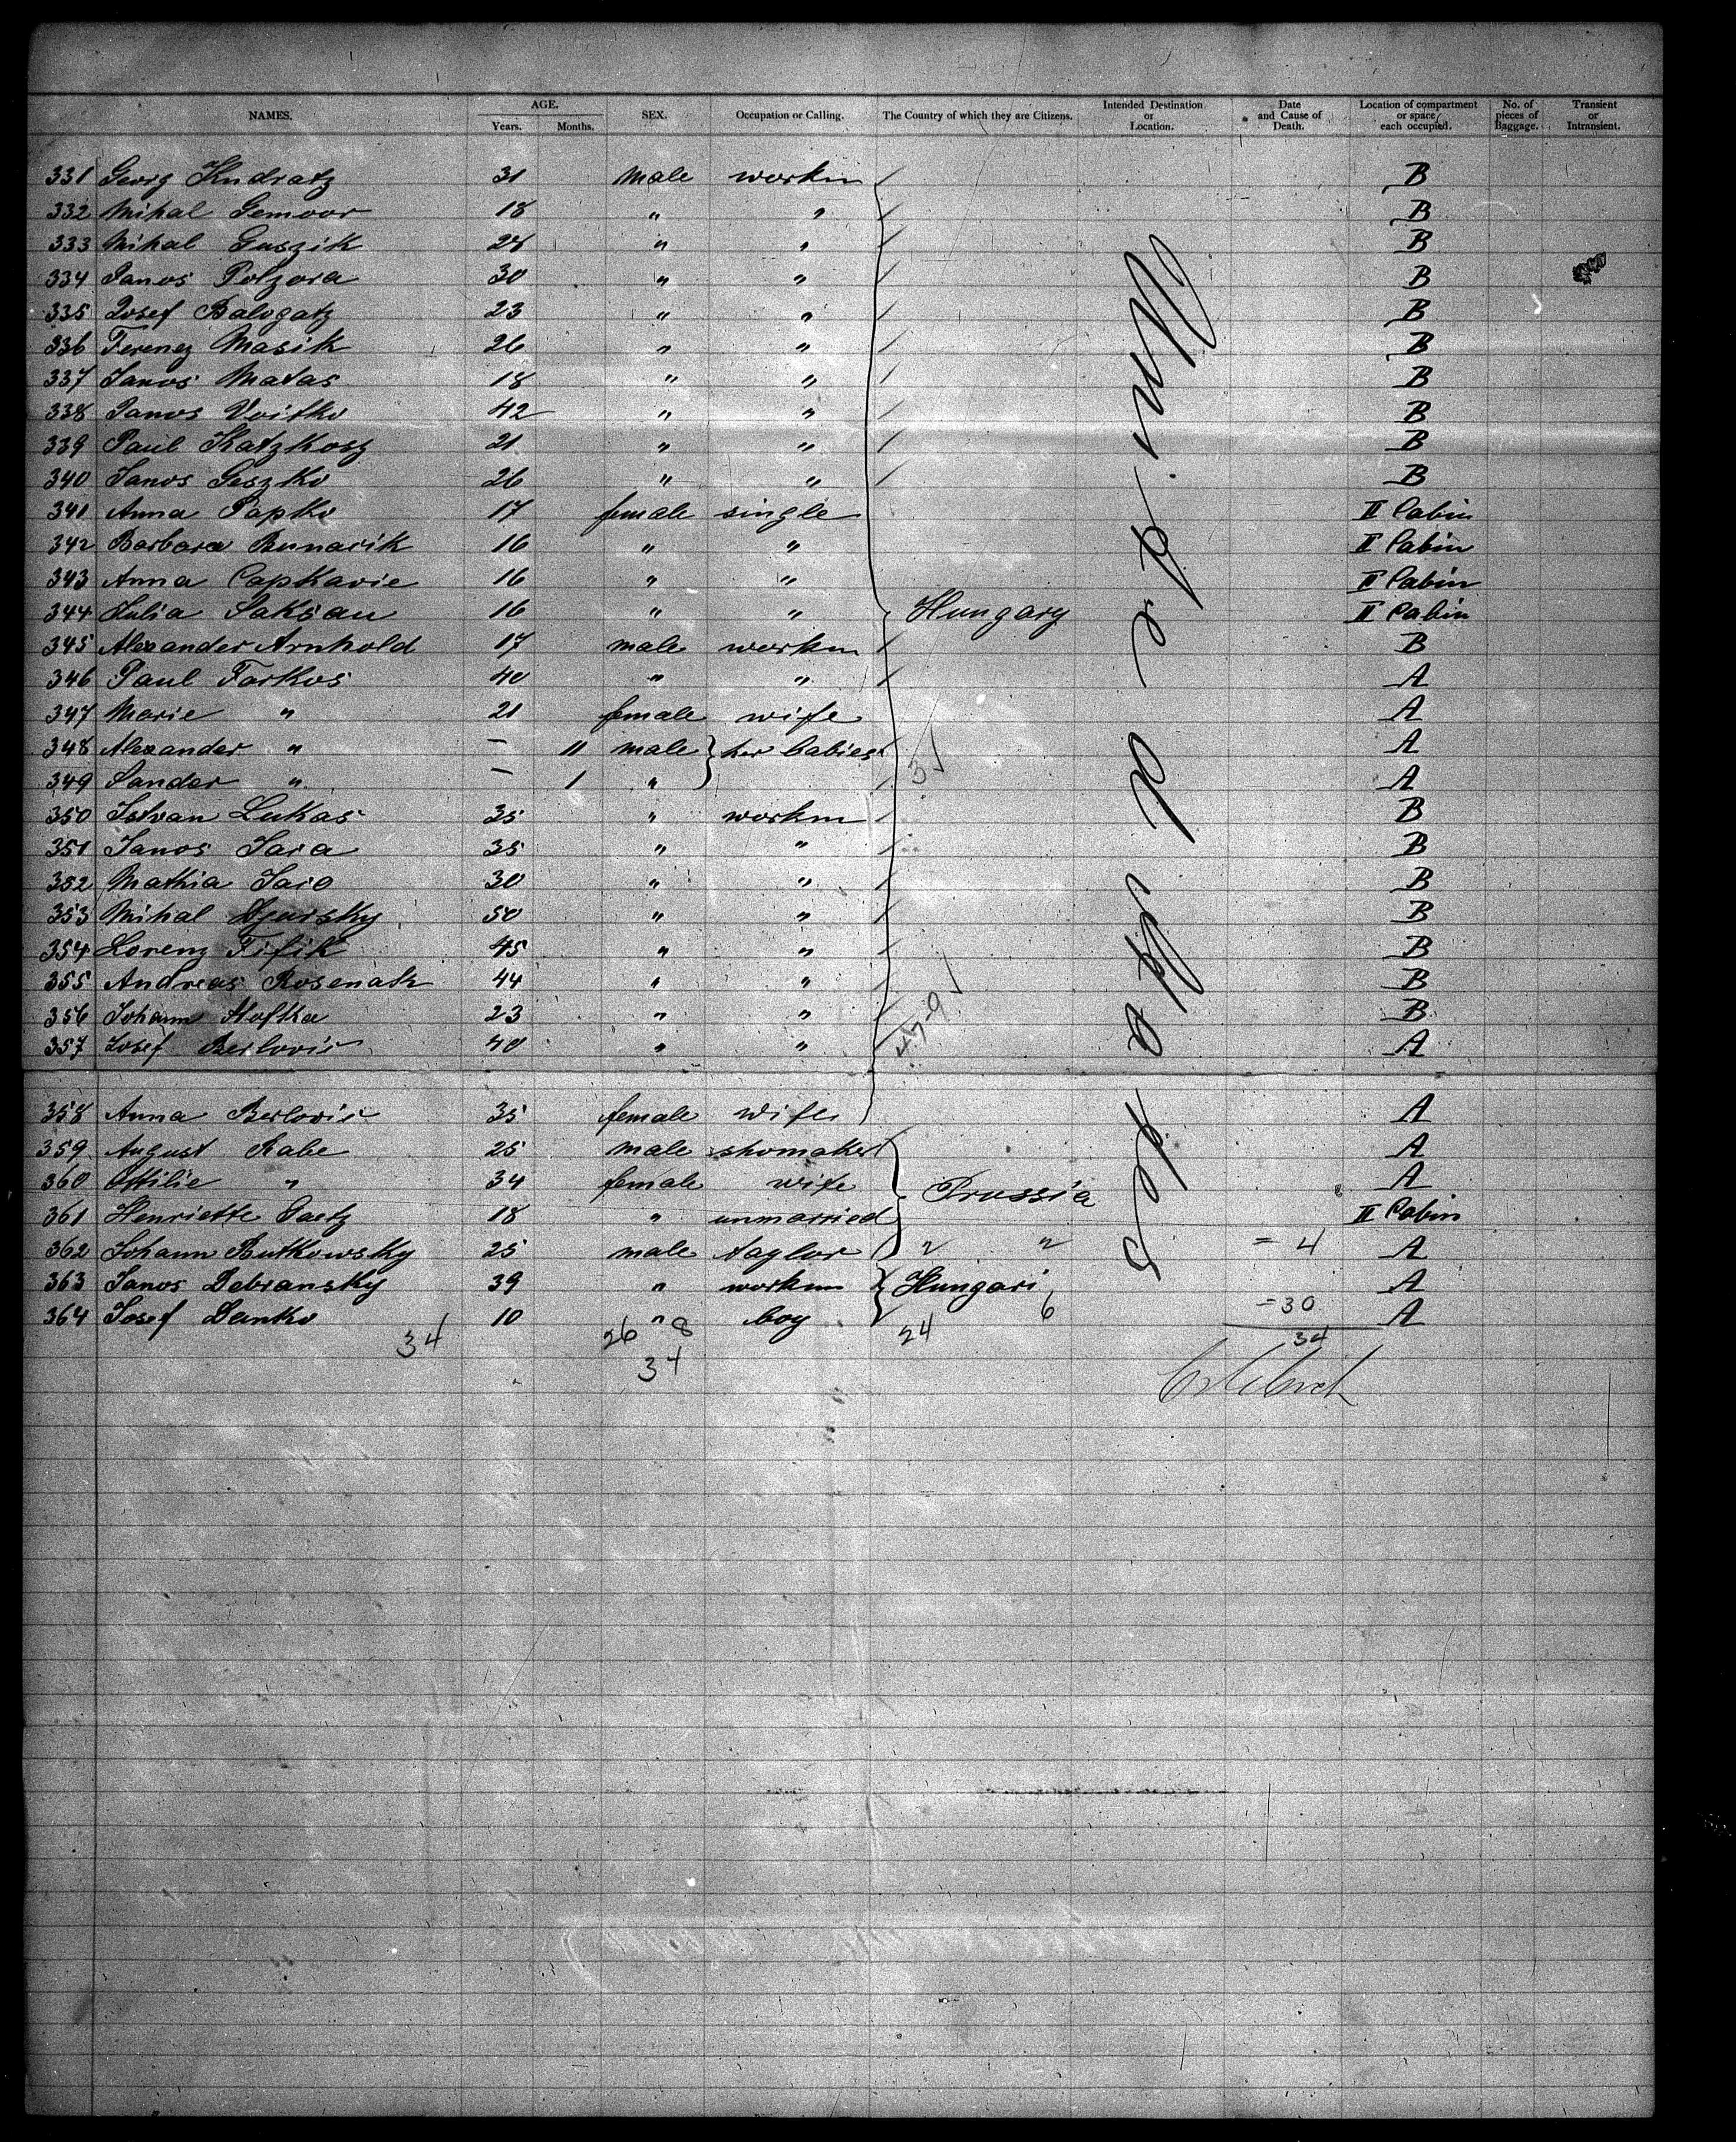 NAMES. AGE. Years. Months. SEX. Occupation or Calling. The Country of which they are Citizens. Intended Destination or Location. Date and Cause of Death. Location of compartment or space each occupied. No. of pieces of Baggage. Transient or Intransient.
331 Georg Kudratz 31 male workm B
332 Mihal Gemoor 18 " " B
333 Mihal Guszik 28 " " B
334 Janos Polzora 30 " " B
335 Josef Balogatz 23 " " B
336 Ferencz Masik 26 " " B
337 Janos Matas 18 " " B
338 Janos Voitko 42 " " B
339 Paul Katzkosz 21 " " B
340 Janos Geszko 26 " " B
341 Anna Papko 17 female single II Cabin
342 Barbara Bunarik 16 " " II Cabin
343 Anna Capkavie 16 " " II Cabin
344 Julia Saksau 16 " " Hungary II Cabin
345 Alexander Arnhold 17 male workm B
346 Paul Farkos 40 " " A
347 Marie " 21 female wife A
348 Alexander " — 11 male her babies A
349 Sandor " — 1 " A
350 Istvan Lukas 35 " workm B
351 Janos Sara 35 " " B
352 Mathia Saro 30 " " B
353 Mihal 50 " " B
354 Lorenz Fifik 45 " " B
355 Andreas Rosenath 44 " " B
356 Johann Hofka 23 " " B
357 Josef Berlovic 40 " " A
358 Anna Berlovic 35 female wife A
359 August Rabe 25 male shomaker A
360 Ottilie " 34 female wife Prussia A
361 Henriette Paetz 18 " unmarried II Cabin
362 Johann Butkowsky 25 male taylor " " = 4 A
363 Janos Debransky 39 " workm Hungari A
364 Josef Danko 10 " boy 6 = 30 A
34 26 8 24 34
34